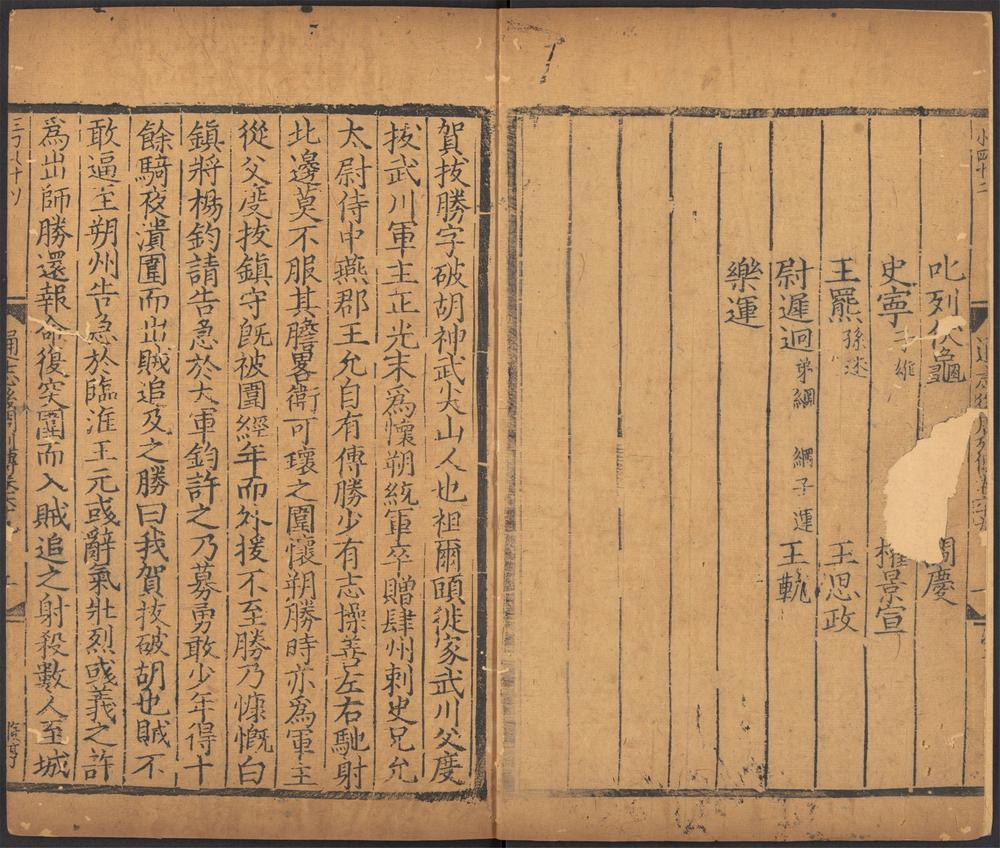 小四十二
叱列伏龜
閻慶
史寧 子雄
權景宣
王羆 孫述
王思政
尉遲迥 弟綱 綱子運
王軌
樂運
賀拔勝字破胡神武尖山人也祖爾頭徙家武川父度
拔武川軍主正光末爲懷朔統軍卒贈肆州刺史兄允
太尉侍中燕郡王允自有傳勝少有志操善左右馳射
北邊莫不服其膽畧衛可瓌之圍懷朔勝時亦爲軍主
從父度拔鎮守旣被圍經年而外援不至勝乃慷慨白
鎮將楊鈞請告急於大軍鈞許之乃募勇敢少年得十
餘騎夜潰圍而出賊追及之勝曰我賀拔破胡也賊不
敢逼至朔州告急於臨淮王元彧辭氣壯烈彧義之許
爲出師勝還報命復突圍而入賊追之射殺數人至城